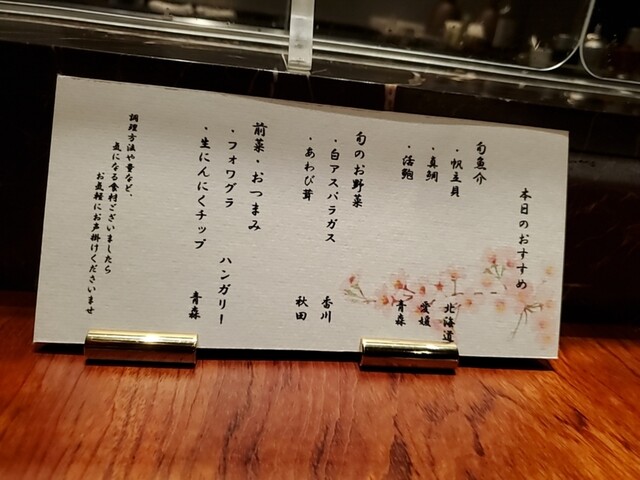 本日のおすすめ
旬魚介
・帆立貝　北海道
・真鯛　愛媛
・活鮑　青森
旬のお野菜
・白アスパラガス　香川
・あわび茸　秋田
前菜・おつまみ
・フォワグラ　ハンガリー
・生にんにくチップ　青森
調理方法や量など、
気になる食材ございましたら
お気軽にお声掛けくださいませ